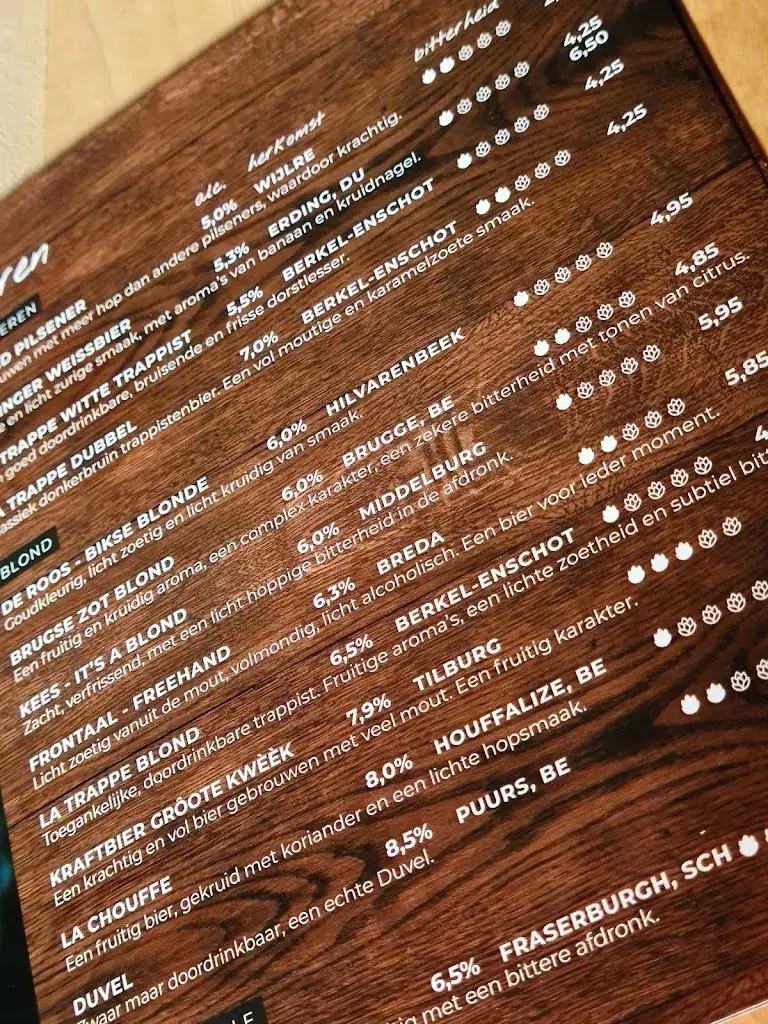 ren
alc. herkomst bitterheid
EREN
D PILSENER 5,0% WIJLRE
uwen met meer hop dan andere pilseners, waardoor krachtig.
NGER WEISSBIER 5,3% ERDING, DU 4,25
6,50
e en licht zurige smaak, met aroma's van banaan en kruidnagel.
TRAPPE WITTE TRAPPIST 5,5% BERKEL-ENSCHOT 4,25
goed doordrinkbare, bruisende en frisse dorstlesser.
A TRAPPE DUBBEL 7,0% BERKEL-ENSCHOT 4,25
assiek donkerbruin trappistenbier. Een vol moutige en karamelzoete smaak.
BLOND
DE ROOS - BIKSE BLONDE 6,0% HILVARENBEEK 4,95
Goudkleurig, licht zoetig en licht kruidig van smaak.
BRUGSE ZOT BLOND 6,0% BRUGGE, BE 4,85
Een fruitig en kruidig aroma, een complex karakter, een zekere bitterheid met tonen van citrus.
KEES - IT'S A BLOND 6,0% MIDDELBURG 5,95
Zacht, verfrissend, met een licht hoppige bitterheid in de afdronk.
FRONTAAL - FREEHAND 6,3% BREDA 5,85
Licht zoetig vanuit de mout, volmondig, licht alcoholisch. Een bier voor ieder moment.
LA TRAPPE BLOND 6,5% BERKEL-ENSCHOT 4
Toegankelijke, doordrinkbare trappist. Fruitige aroma's, een lichte zoetheid en subtiel bit
KRAFTBIER GRÔOTE KWÈÈK 7,9% TILBURG
Een krachtig en vol bier gebrouwen met veel mout. Een fruitig karakter.
LA CHOUFFE 8,0% HOUFFALIZE, BE
Een fruitig bier, gekruid met koriander en een lichte hopsmaak.
DUVEL 8,5% PUURS, BE
Zwaar maar doordrinkbaar, een echte Duvel.
LE
6,5% FRASERBURGH, SCH
tig met een bittere afdronk.